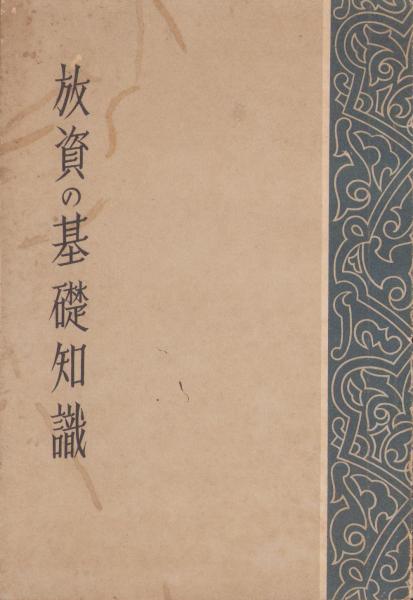 放資の基礎知識